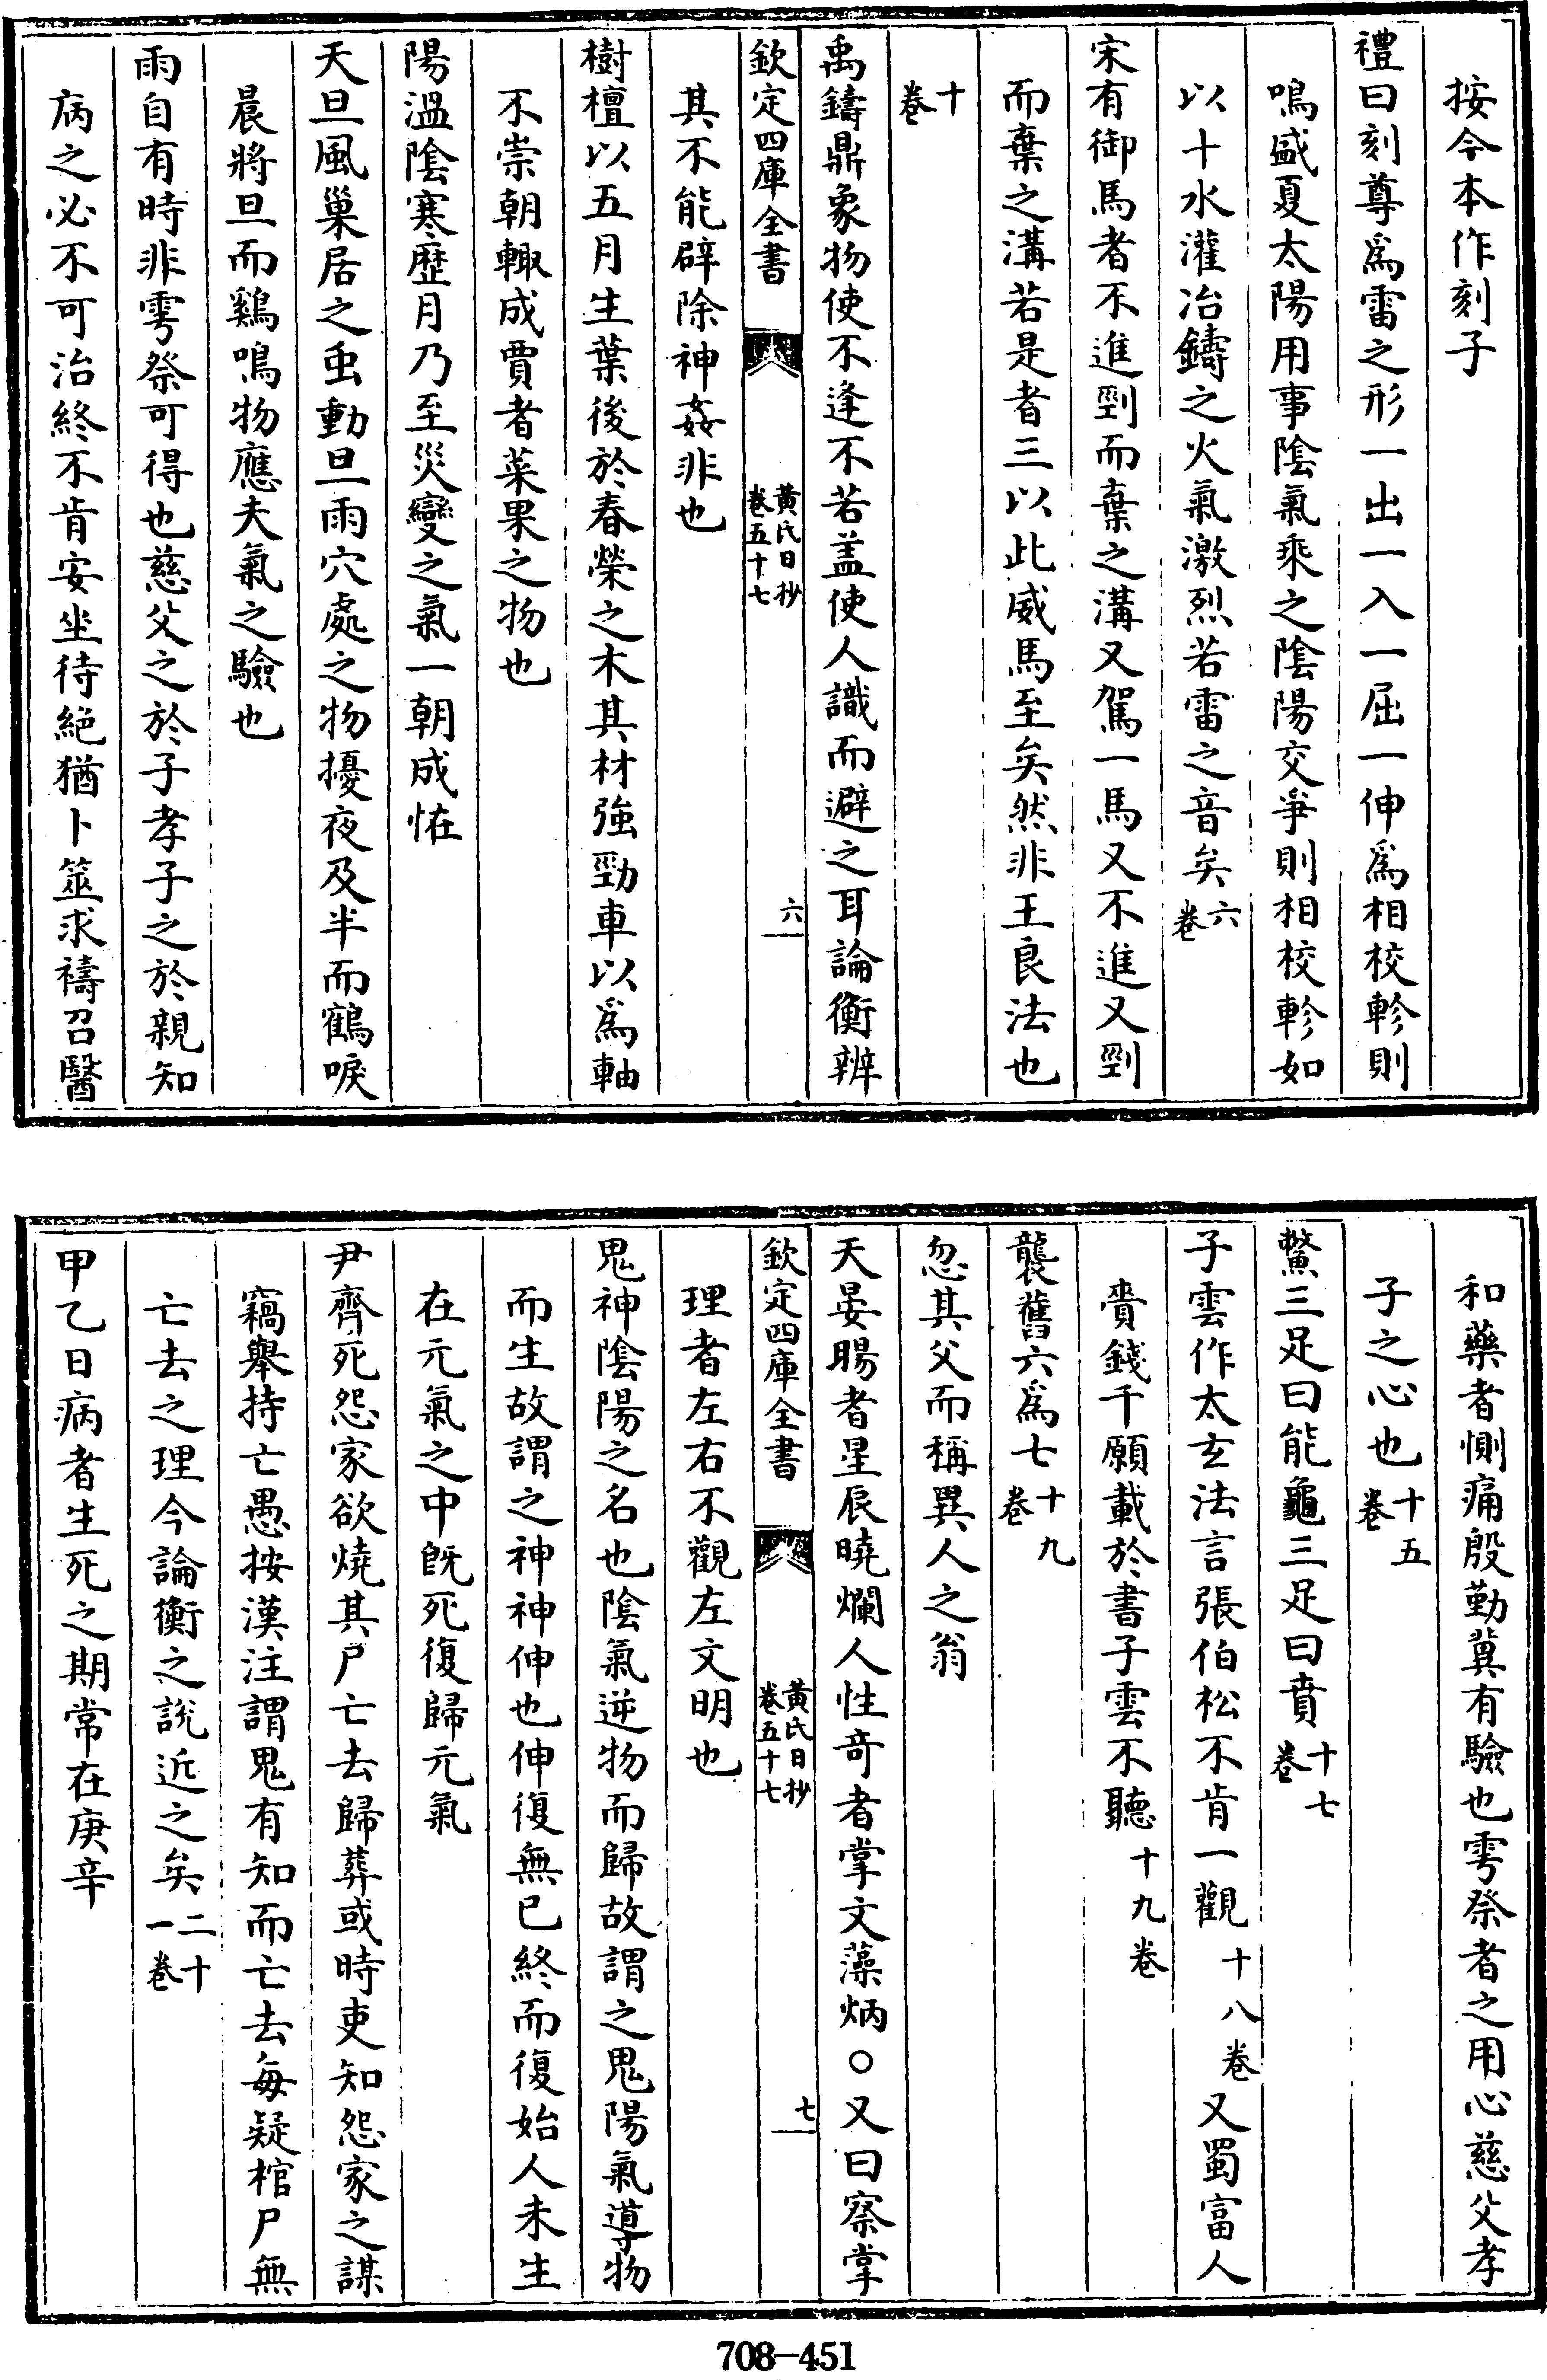 按今本作刻子
禮曰刻尊爲雷之形一出一入一屈一伸爲相校軫則
鳴盛夏太陽用事陰氣乘之陰陽交爭則相校軫如
以十水灌冶鑄之火氣激烈若雷之音矣六卷
宋有御馬者不進剄而棄之溝又駕一馬又不進又剄
而棄之溝若是者三以此威馬至矣然非王良法也
十卷
禹鑄鼎象物使不逢不若盖使人識而避之耳論衡辨
欽定四庫全書
黃氏日抄
卷五十七
六
其不能辟除神姦非也
樹檀以五月生葉後於春榮之木其材強勁車以爲軸
不崇朝輙成賈者菜果之物也
陽溫陰寒歷月乃至災變之氣一朝成恠
天旦風巢居之虫動旦雨穴處之物擾夜及半而鶴唳
晨將旦而鷄鳴物應夫氣之驗也
雨自有時非雩祭可得也慈父之於子孝子之於親知
病之必不可治終不肯安坐待絕猶卜筮求禱召醫
和藥者惻痛殷勤冀有驗也雩祭者之用心慈父孝
子之心也十五卷
鱉三足曰能龜三足曰賁十七卷
子雲作太玄法言張伯松不肯一觀十八卷又蜀富人
賫錢千願載於書子雲不聽十九卷
襲舊六爲七十九卷
忽其父而稱異人之翁
天晏暘者星辰曉爛人性奇者掌文藻炳○又曰察掌
欽定四庫全書
黃氏日抄
卷五十七
七
理者左右不觀左文明也
鬼神陰陽之名也陰氣逆物而歸故謂之鬼陽氣導物
而生故謂之神神伸也伸復無已終而復始人未生
在元氣之中旣死復歸元氣
尹齊死怨家欲燒其尸亡去歸葬或時吏知怨家之謀
竊舉持亡愚按漢注謂鬼有知而亡去每疑棺尸無
亡去之理今論衡之說近之矣二十一卷
甲乙日病者生死之期常在庚辛
708-451